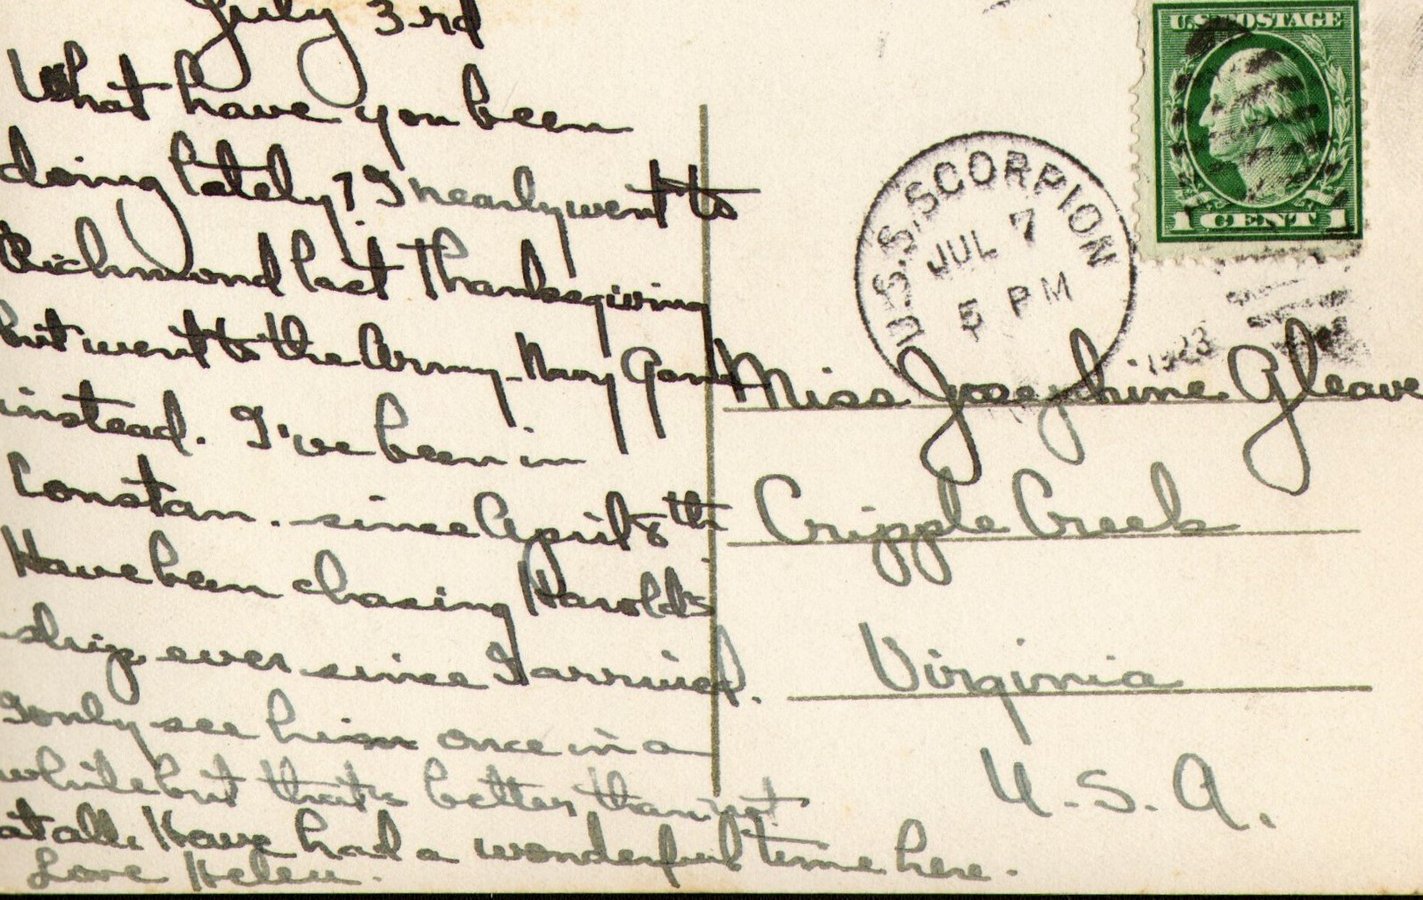 July 3rd
What have you been
doing lately? I nearly went to
Richmond last Thanksgiving
but went to the Army-Navy Game
instead. I've been in
Constan. since April 8th
Have been chasing Harold's
ship ever since I arrived.
I only see him once in a
while but that's better than not
at all. Have had a wonderful time here.
Love Helen.
U.S. POSTAGE
1 CENT 1
U.S.S. SCORPION
JUL 7
5 PM
1923
Miss Josephine Gleave
Cripple Creek
Virginia
U.S.A.